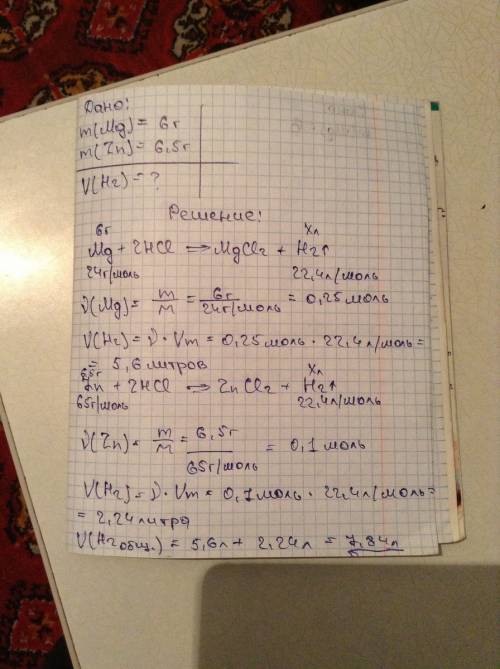 Дано:
m(Mg) = 6г
m(Zn) = 6,5г
V(H2) = ?
Решение:
6г xл
Mg + 2HCl => MgCl2 + H2↑
24г/моль 22,4л/моль
ν(Mg) = m/M = 6г/24г/моль = 0,25моль
V(H2) = ν · Vm = 0,25моль · 22,4л/моль =
= 5,6 литров
6,5г xл
Zn + 2HCl => ZnCl2 + H2↑
65г/моль 22,4л/моль
ν(Zn) = m/M = 6,5г/65г/моль = 0,1 моль
V(H2) = ν · Vm = 0,1моль · 22,4л/моль =
= 2,24литра
V(H2общ.) = 5,6л + 2,24л = 7,84л